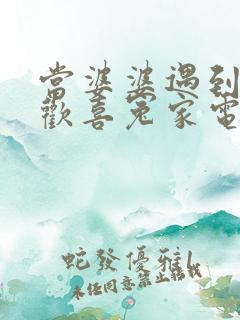 當婆婆遇到
歡喜冤家電
蛇發優雅
未經同意禁止轉載